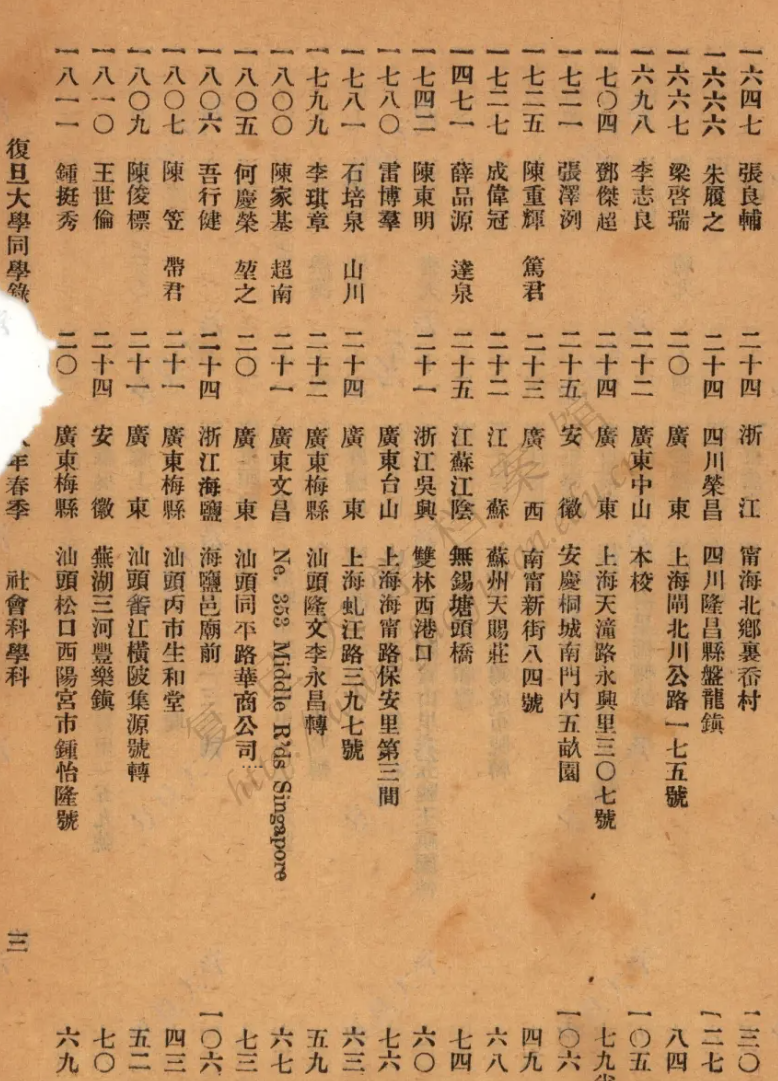 一六四七 張良輔 二十四 浙江 甯海北鄉裏岙村 一三〇
一六六六 朱履之 二十四 四川榮昌 四川隆昌縣盤龍鎮 一二七
一六六七 梁啓瑞 二〇 廣東 上海閘北川公路一七五號 八四
一六九八 李志良 二十二 廣東中山 本校 一〇五
一七〇四 鄧傑超 二十四 廣東 上海天潼路永興里三〇七號 七九
一七二一 張澤洌 二十五 安徽 安慶桐城南門內五畝園 一〇六
一七二五 陳重輝 篤君 二十三 廣西 南甯新街八四號 四九
一七二七 成偉冠 二十二 江蘇 蘇州天賜莊 六八
一四七一 薛品源 達泉 二十五 江蘇江陰 無錫塘頭橋 七四
一七四二 陳東明 二十一 浙江吳興 雙林西港口 六〇
一七八〇 雷博羣 廣東台山 上海海甯路保安里第三間 七六
一七八一 石培泉 山川 二十四 廣東 上海虬江路三九七號 六三
一七九九 李琪章 二十二 廣東梅縣 汕頭隆文李永昌轉 五九
一八〇〇 陳家基 超南 二十一 廣東文昌 No. 353 Middle R'ds Singapore 六七
一八〇五 何慶榮 堃之 二〇 廣東 汕頭同平路華商公司 七三
一八〇六 吾行健 二十四 浙江海鹽 海鹽邑廟前 一〇六
一八〇七 陳笠 帶君 二十一 廣東梅縣 汕頭丙市生和堂 四三
一八〇九 陳俊標 二十一 廣東 汕頭畬江橫陂集源號轉 五二
一八一〇 王世倫 二十四 安徽 蕪湖三河豐樂鎮 七〇
一八一一 鍾挺秀 二〇 廣東梅縣 汕頭松口西陽宮市鍾怡隆號 六九
復旦大學同學錄 年春季 社會科學科 三